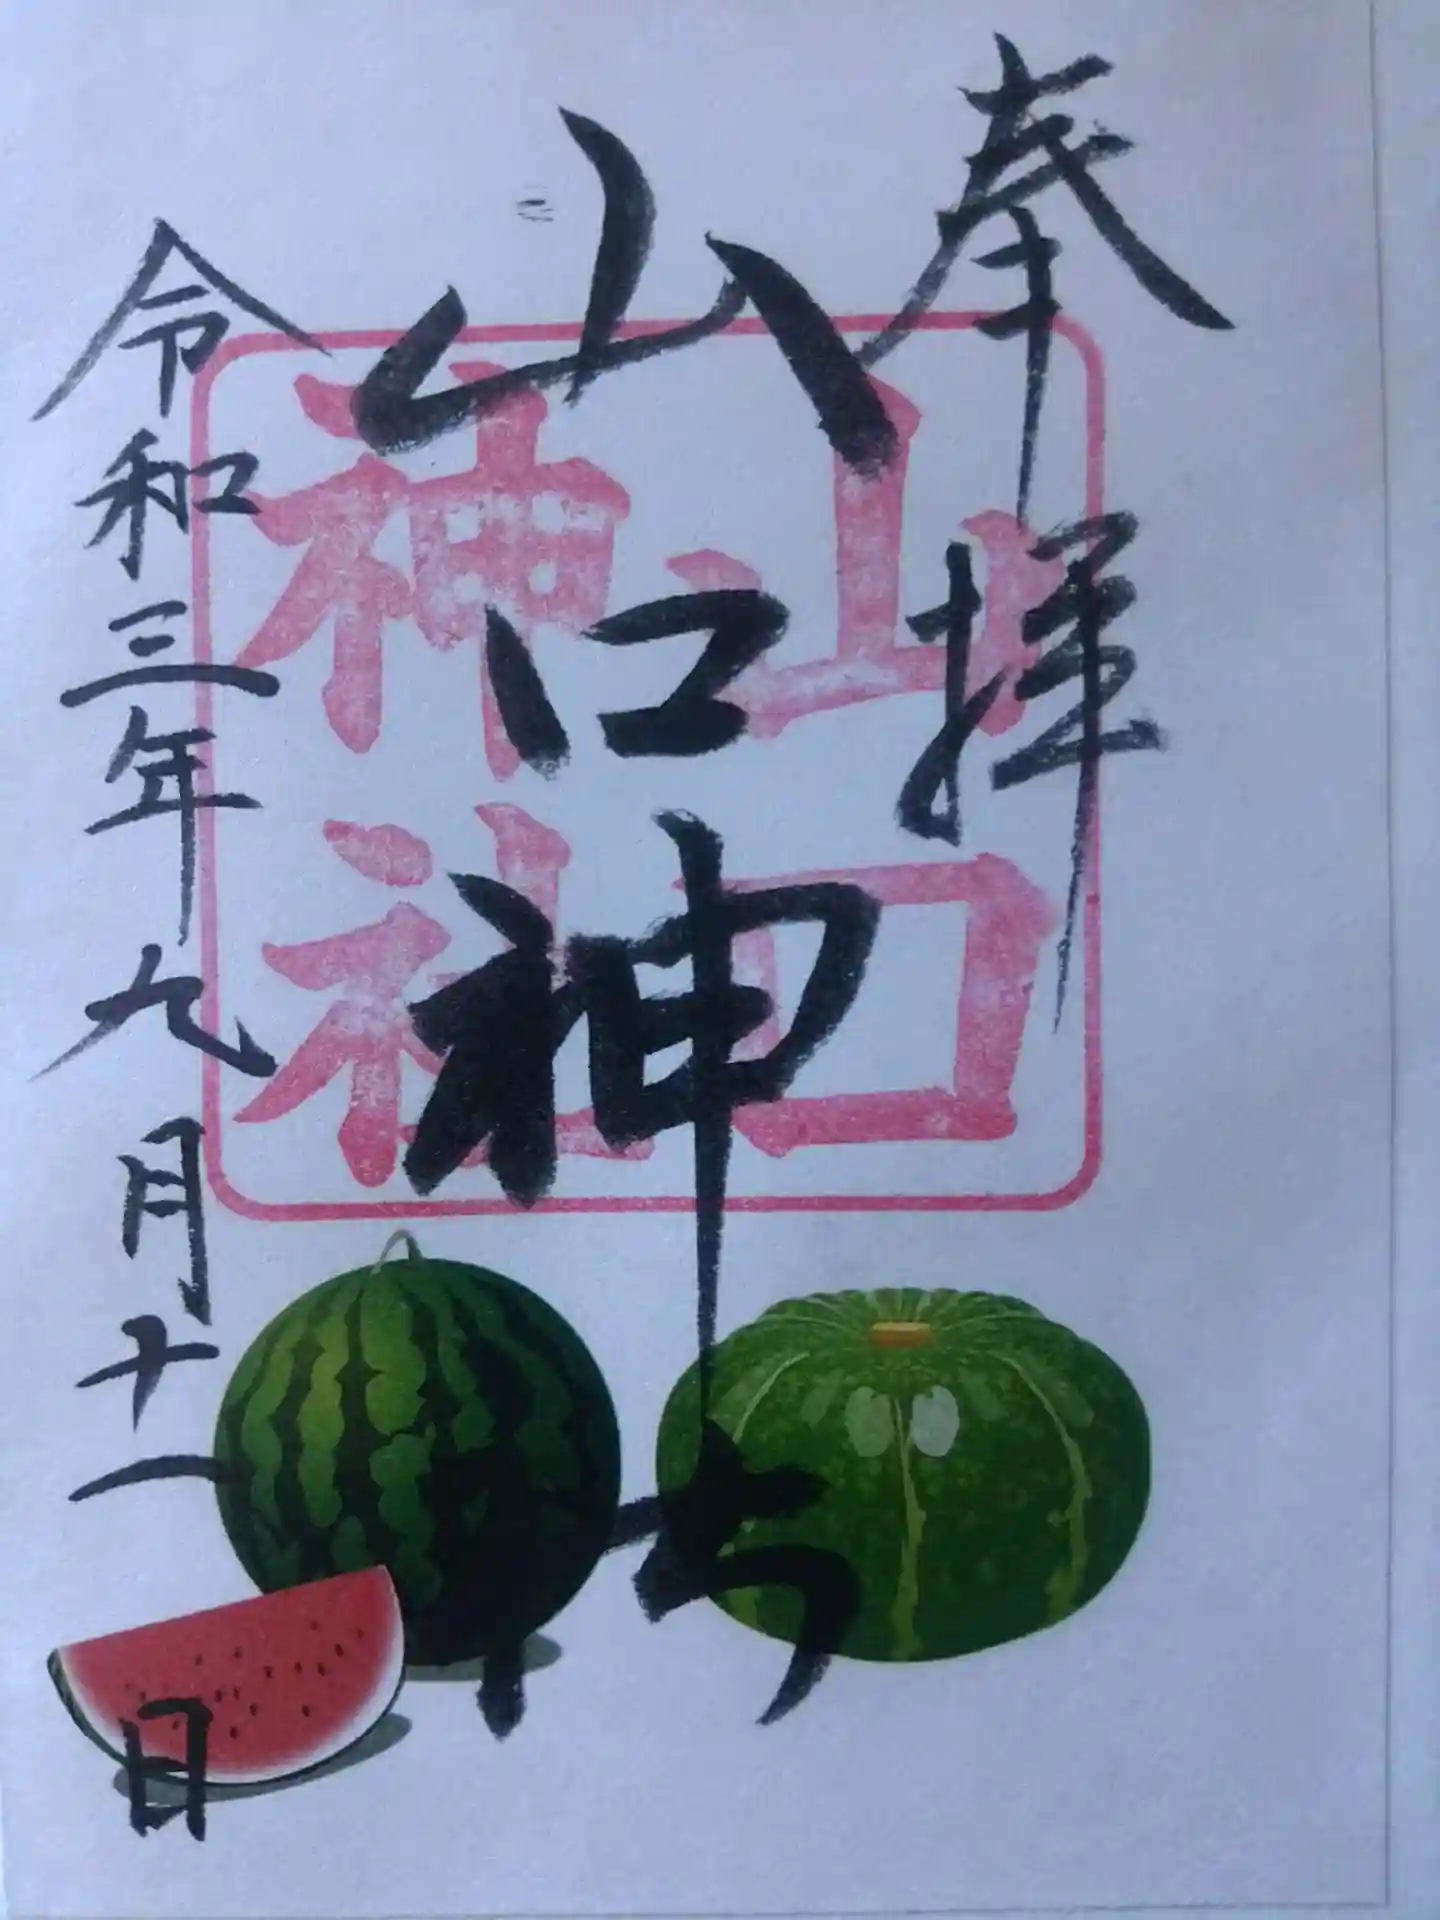 奉拝
山口神社
山口
神社
令和三年九月十一日